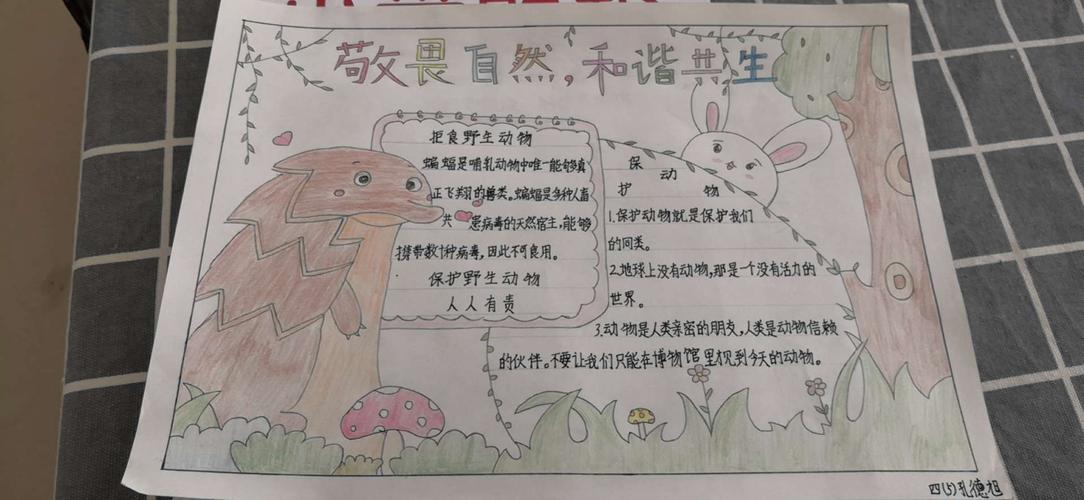 敬畏自然,和谐共生
拒食野生动物
蝙蝠是哺乳动物中唯一能够真
正飞翔的兽类。蝙蝠是多种人畜
共患病毒的天然宿主,能够
携带数十种病毒,因此不可食用。
保护野生动物
人人有责
保护动物
1.保护动物就是保护我们
的同类。
2.地球上没有动物,那是一个没有活力的
世界。
3.动物是人类亲密的朋友,人类是动物信赖
的伙伴。不要让我们只能在博物馆里见到今天的动物。
四(5)孔德旭